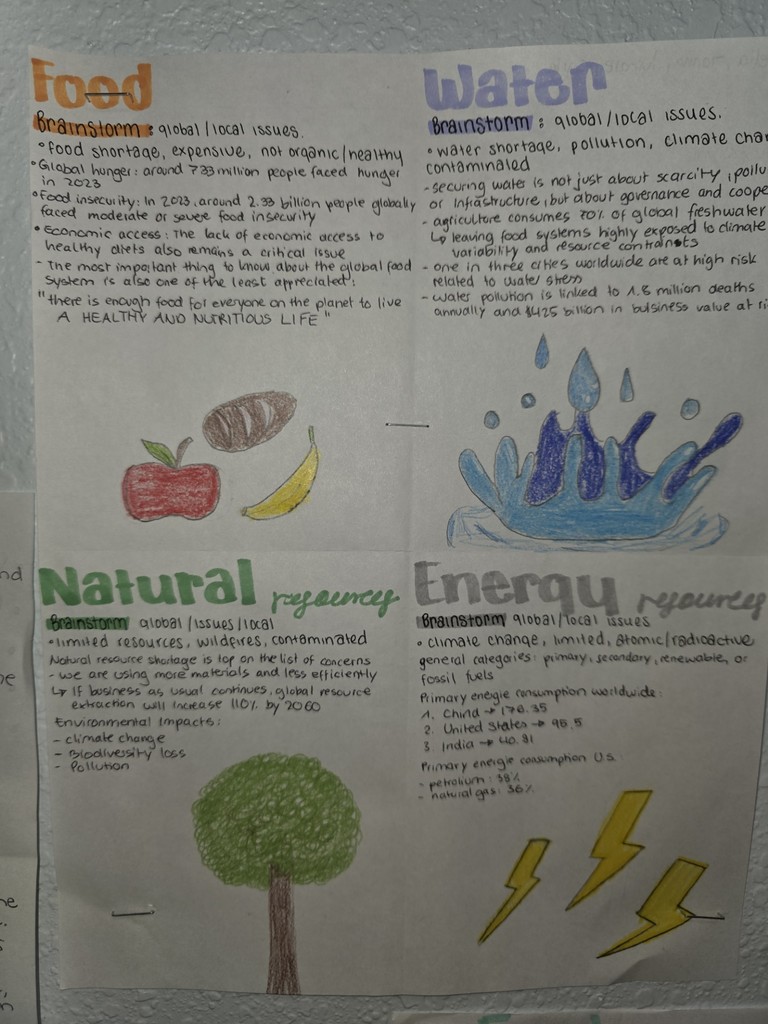 Food
Brainstorm: global/local issues.
• food shortage, expensive, not organic/healthy
• Global hunger: around 733 million people faced hunger
in 2023
• Food insecurity: In 2023, around 2.33 billion people globally
faced moderate or severe food insecurity
• Economic access: The lack of economic access to
healthy diets also remains a critical issue
- The most important thing to know about the global food
system is also one of the least appreciated:
"there is enough food for everyone on the planet to live
A HEALTHY AND NUTRITIOUS LIFE"
Water
Brainstorm: global/local issues.
• water shortage, pollution, climate cha
contaminated
- securing water is not just about scarcity, pollu
or infrastructure, but about governance and coope
- agriculture consumes 70% of global freshwater
↳ leaving food systems highly exposed to climate
variability and resource
- one in three cities worldwide are at high risk
related to water stress
- water pollution is linked to 1.8 million deaths
annually and $425 billion in business value at ri
Natural resources
Brainstorm global/issues/local
• limited resources, wildfires, contaminated
Natural resource shortage is top on the list of concerns
- we are using more materials and less efficiently
↳ If business as usual continues, global resource
extraction will increase 110% by 2060
Environmental Impacts:
- climate change
- Biodiversity loss
- Pollution
Energy resources
Brainstorm global/local issues
• climate change, limited, atomic/radioactive
general categories: primary, secondary, renewable, or
fossil fuels
Primary energie consumption worldwide:
1. China → 176.35
2. United States → 95,5
3 India → 40.91
Primary energie consumption U.S.
- petrolium: 38%
- natural gas: 36%
nd
ne